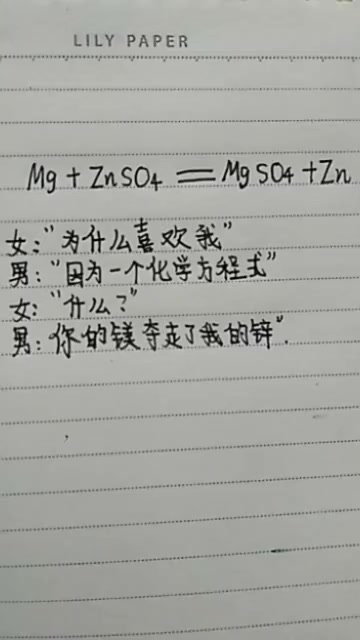 LILY PAPER
Mg + ZnSO4 == MgSO4 + Zn
女:"为什么喜欢我"
男:"因为一个化学方程式"
女:"什么?"
男:你的镁夺走了我的锌".